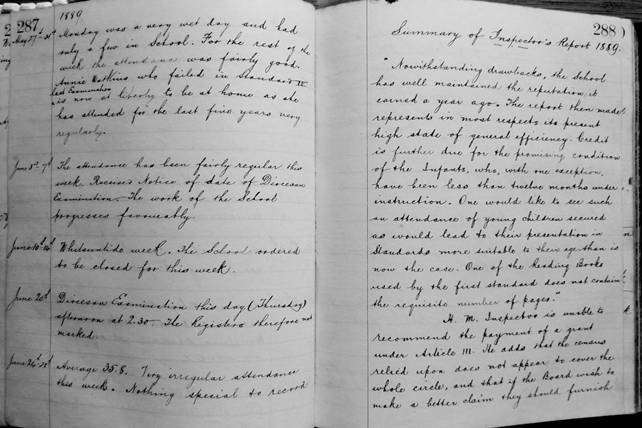 287
1889
May 27th-31st
Monday was a very wet day and had
only a few in School. For the rest of the
week the attendance was fairly good.
Annie who failed in Standard IV
last Examination
is now at liberty to be at home as she
has attended for the last five years very
regularly.
June 3rd-7th
The attendance has been fairly regular this
week Received Notice of date of Diocesan
Examination. The work of the School
progresses favourably.
June 10th-14th
Whitsuntide week. The School ordered
to be closed for this week.
June 20th
Diocesan Examination this day (Thursday)
afternoon at 2.30. The Registers therefore not
marked.
June 24th
Average 35.8. Very irregular attendance
this week. Nothing special to record
288
Summary of Inspector's Report 1889.
"Nowithstanding drawbacks, the School
has well maintained the reputation it
earned a year ago. The report then made
represents in most respects its present
high state of general efficiency. Credit
is further due for the promising condition
of the Infants, who, with one exception,
have been less than twelve months under
instruction. One would like to see such
an attendance of young children secured
as would lead to their presentation in
Standards more suitable to their age than is
now the case. One of the Reading Books
used by the first standard does not contain
the requisite number of pages."
H. M. Inspector is unable to
recommend the payment of a grant
under Article III. He adds that the census
relied upon does not appear to cover the
whole circle, and that if the Board wish to
make a better claim they should furnish